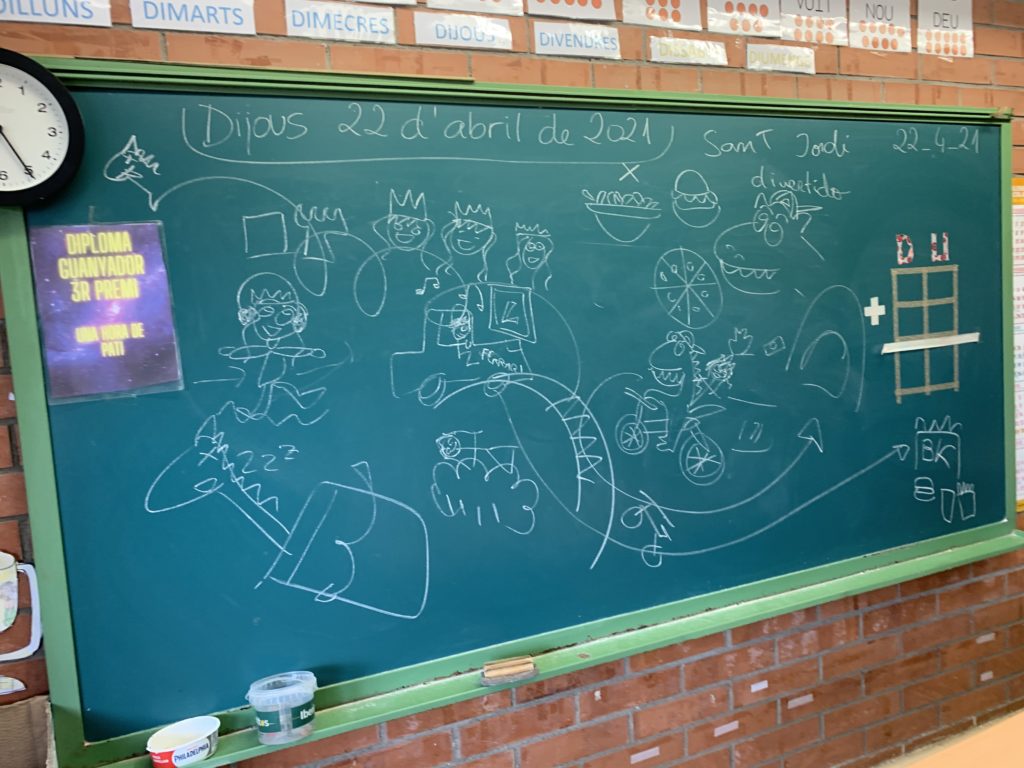 DILLUNS
DIMARTS
DIMECRES
DIJOUS
DIVENDRES
DISSABTE
DIUMENGE
VUIT
NOU
DEU
Dijous 22 d'abril de 2021
Sant Jordi
22-4-21
divertido
DIPLOMA
GUANYADOR
3R PREMI
UNA HORA DE
PATI
D U
+
L
FERRARI
zzz
BK
1 2 3 4 5 6
PHILADELPHIA